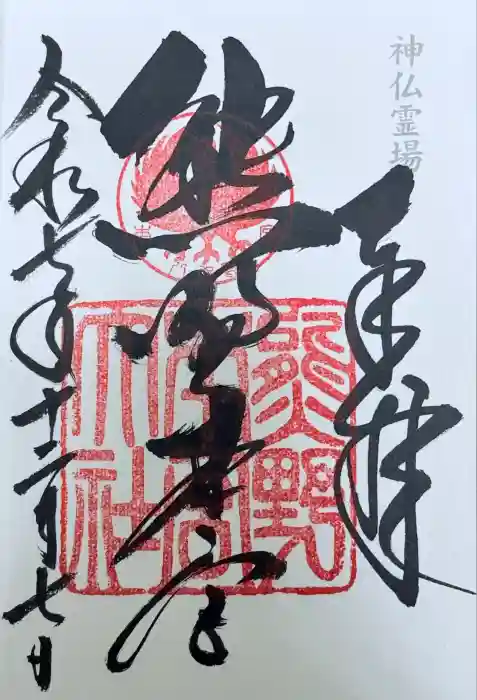 神仏霊場
奉拝
熊野本宮
熊野本宮大社
令和七年十二月七日